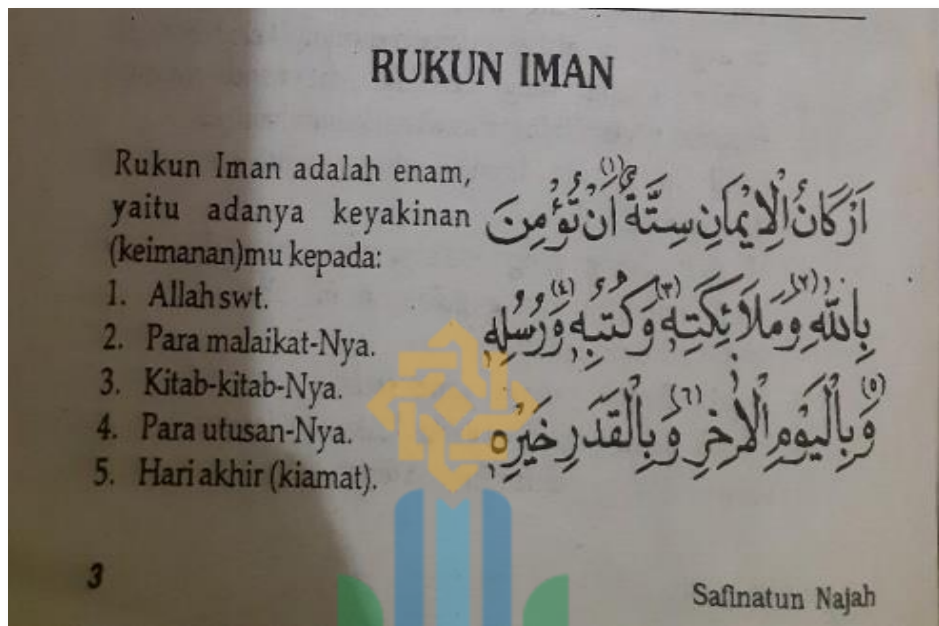 RUKUN IMAN
Rukun Iman adalah enam,
yaitu adanya keyakinan
(keimanan)mu kepada:
1. Allah swt.
2. Para malaikat-Nya.
3. Kitab-kitab-Nya.
4. Para utusan-Nya.
5. Hari akhir (kiamat).
اَرْكَانُ الْاِيْمَانِ سِتَّةٌ (١) اَنْ تُؤْمِنَ
بِاللهِ (٢) وَمَلَائِكَتِهِ (٣) وَكُتُبِهِ (٤) وَرُسُلِهِ
(٥) وَبِالْيَوْمِ الْاٰخِرِ (٦) وَبِالْقَدَرِ خَيْرِهِ
3
Safinatun Najah